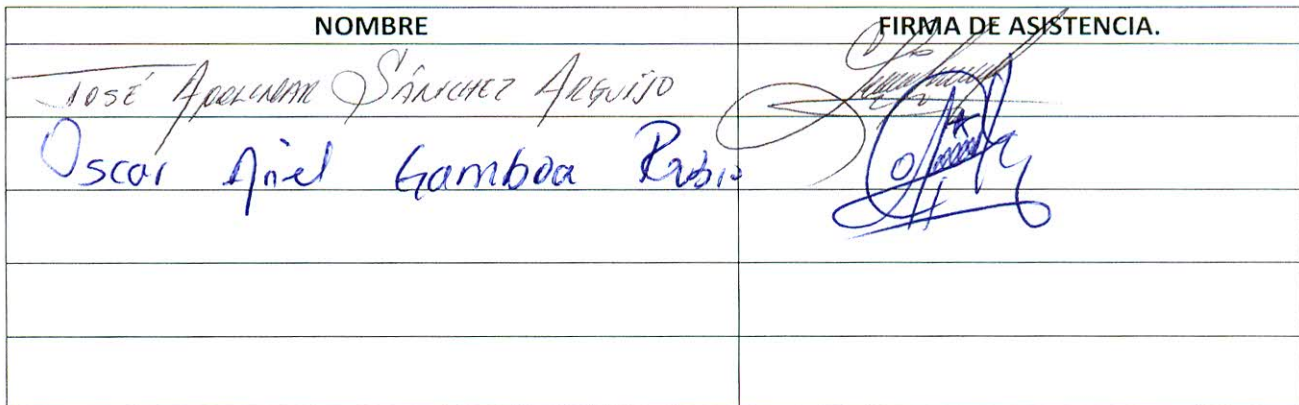 NOMBRE FIRMA DE ASISTENCIA.
JOSÉ APOLINAR SÁNCHEZ ARGUIJO
Oscar Ariel Gamboa Rubio